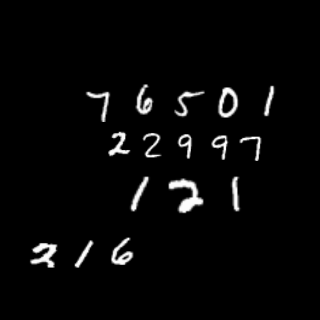 76501
22997
121
216